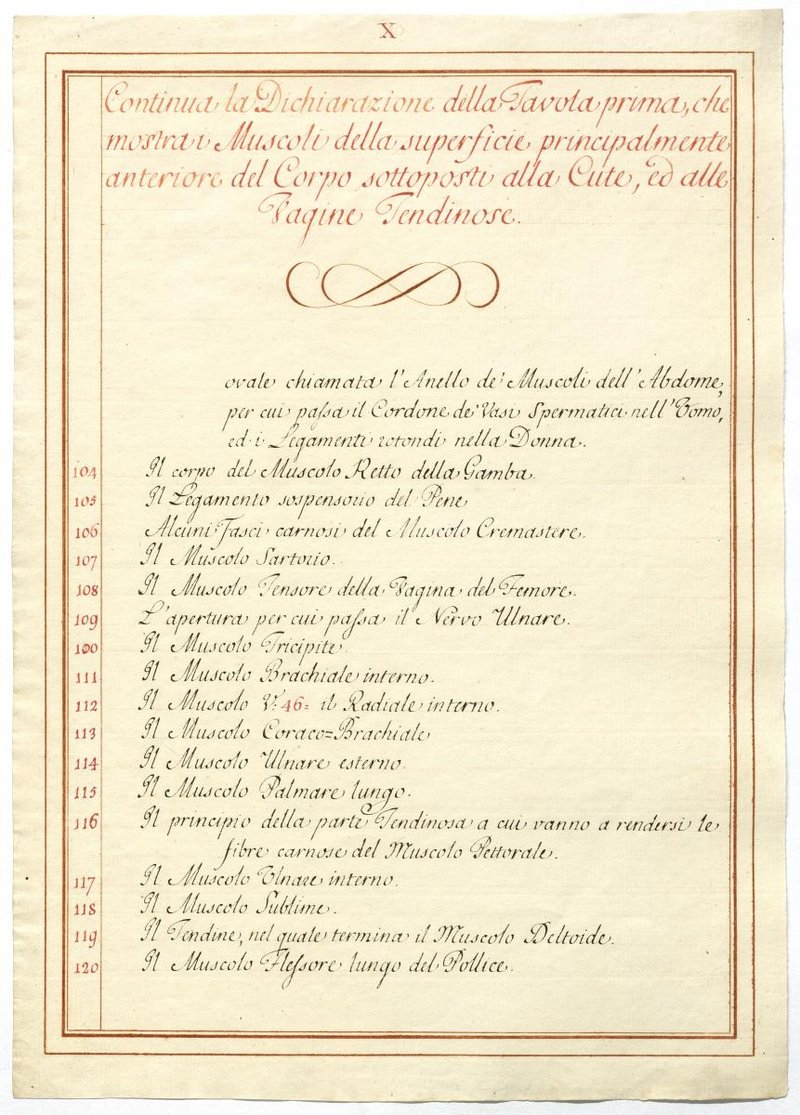 X
Continua la Dichiarazione della Tavola prima, che
mostra i Muscoli della superficie principalmente
anteriore del Corpo sottoposti alla Cute, ed alle
Vagine Tendinose.
ovale chiamata l'Anello de' Muscoli dell'Abdome,
per cui passa il Cordone de' Vasi Spermatici nell'Vomo,
ed i Legamenti rotondi nella Donna.
104 Il corpo del Muscolo Retto della Gamba.
105 Il Legamento sospensorio del Pene
106 Alcuni Fasci carnosi del Muscolo Cremastere.
107 Il Muscolo Sartorio.
108 Il Muscolo Tensore della Vagina del Femore.
109 L'apertura per cui passa il Nervo Ulnare.
100 Il Muscolo Tricipite.
111 Il Muscolo Brachiale interno.
112 Il Muscolo V. 46= il Radiale interno.
113 Il Muscolo Coraco=Brachiale
114 Il Muscolo Ulnare esterno.
115 Il Muscolo Palmare lungo.
116 Il principio della parte Tendinosa a cui vanno a rendersi le
fibre carnose del Muscolo Pettorale.
117 Il Muscolo Ulnare interno.
118 Il Muscolo Sublime.
119 Il Tendine, nel quale termina il Muscolo Deltoide.
120 Il Muscolo Flessore lungo del Pollice.